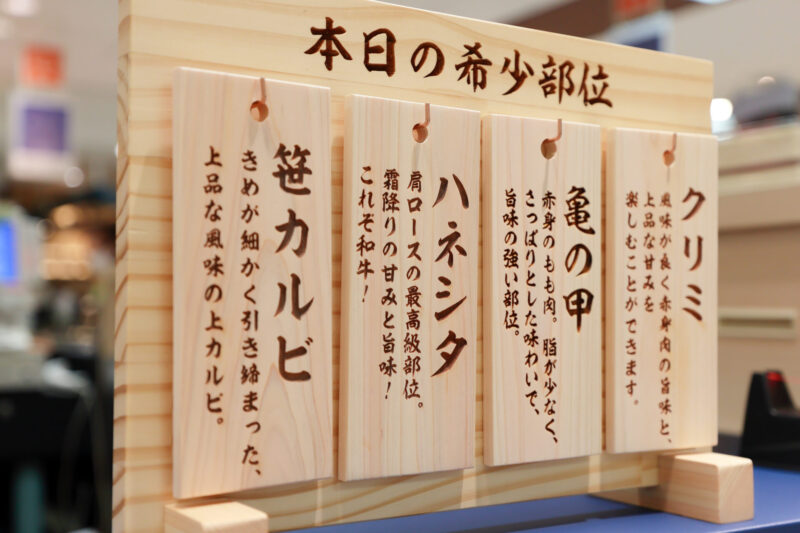 本日の希少部位
クリミ
風味が良く赤身肉の旨味と、
上品な甘みを
楽しむことができます。
亀の甲
赤身のもも肉。脂が少なく、
さっぱりとした味わいで、
旨味の強い部位。
ハネシタ
肩ロースの最高級部位。
霜降りの甘みと旨味！
これぞ和牛！
笹カルビ
きめが細かく引き締まった、
上品な風味の上カルビ。